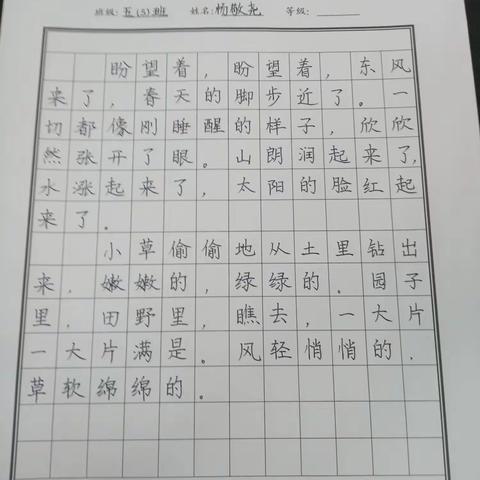 班级:五(5)班 姓名:杨敬尧 等级:
盼望着,盼望着,东风
来了,春天的脚步近了。一
切都像刚睡醒的样子,欣欣
然张开了眼。山朗润起来了,
水涨起来了,太阳的脸红起
来了。
小草偷偷地从土里钻出
来,嫩嫩的,绿绿的。园子
里,田野里,瞧去,一大片
一大片满是。风轻悄悄的,
草软绵绵的。